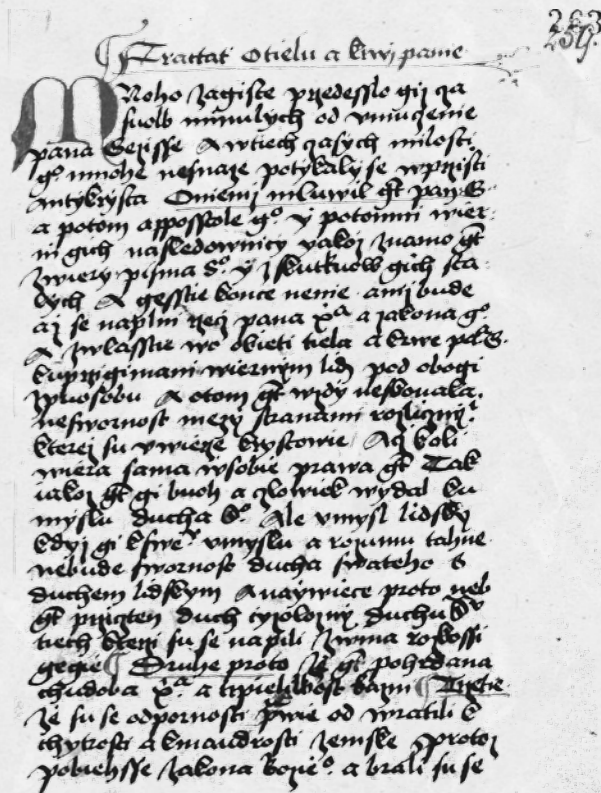 263
259.
Tractat O tielu a krwi panie
MNoho zagiste przedesslo giz za
suolb minulych od vmuczenie
pana Gezisse A wtiech czasych milosti
g° mnohe nesnaze potykaly se w przisti
Antykrysta O niemz mluwil gt pan G
a potom appossstole g° y potomni wier
ni gich nasledownicy yakoz znamo gt
zwiery pisma s° y z skutkuow gich sta
lych A gesstie konce nenie ani bude
az se naplni rzecz pana xa a zakona g°
A zwlasstie wo obieti tiela a krwe pa G
k przigimani wiernym lidem pod obogi
zpuosobu A o tom gt wzdy neskonala
nesworność mezy stranami rozlicznymi
kterez su v wierze krystowie Acz koli
wiera sama w sobie prawa gt Tak
iakoz gt gi buoh a czlowiek wydal ku
myslu ducha s° Ale vmysl lidsky
kdyz gi k swe° vmyslu a rozumu tahne
nebude swornost ducha swateho s
duchem lidskym A naywiece proto neb
gt przizen duch cyzolozny duchu
tiech kterzi su se napili z wina rozkossi
gegie Druhe proto ze gt pohrdana
chudoba xa a trpieliwost kazni Trzetie
ze su se odpornosti prwe od wratili k
chytrosti a k maudrosti zemske Protoz
pobiehsse zakona bozie° a brali su se